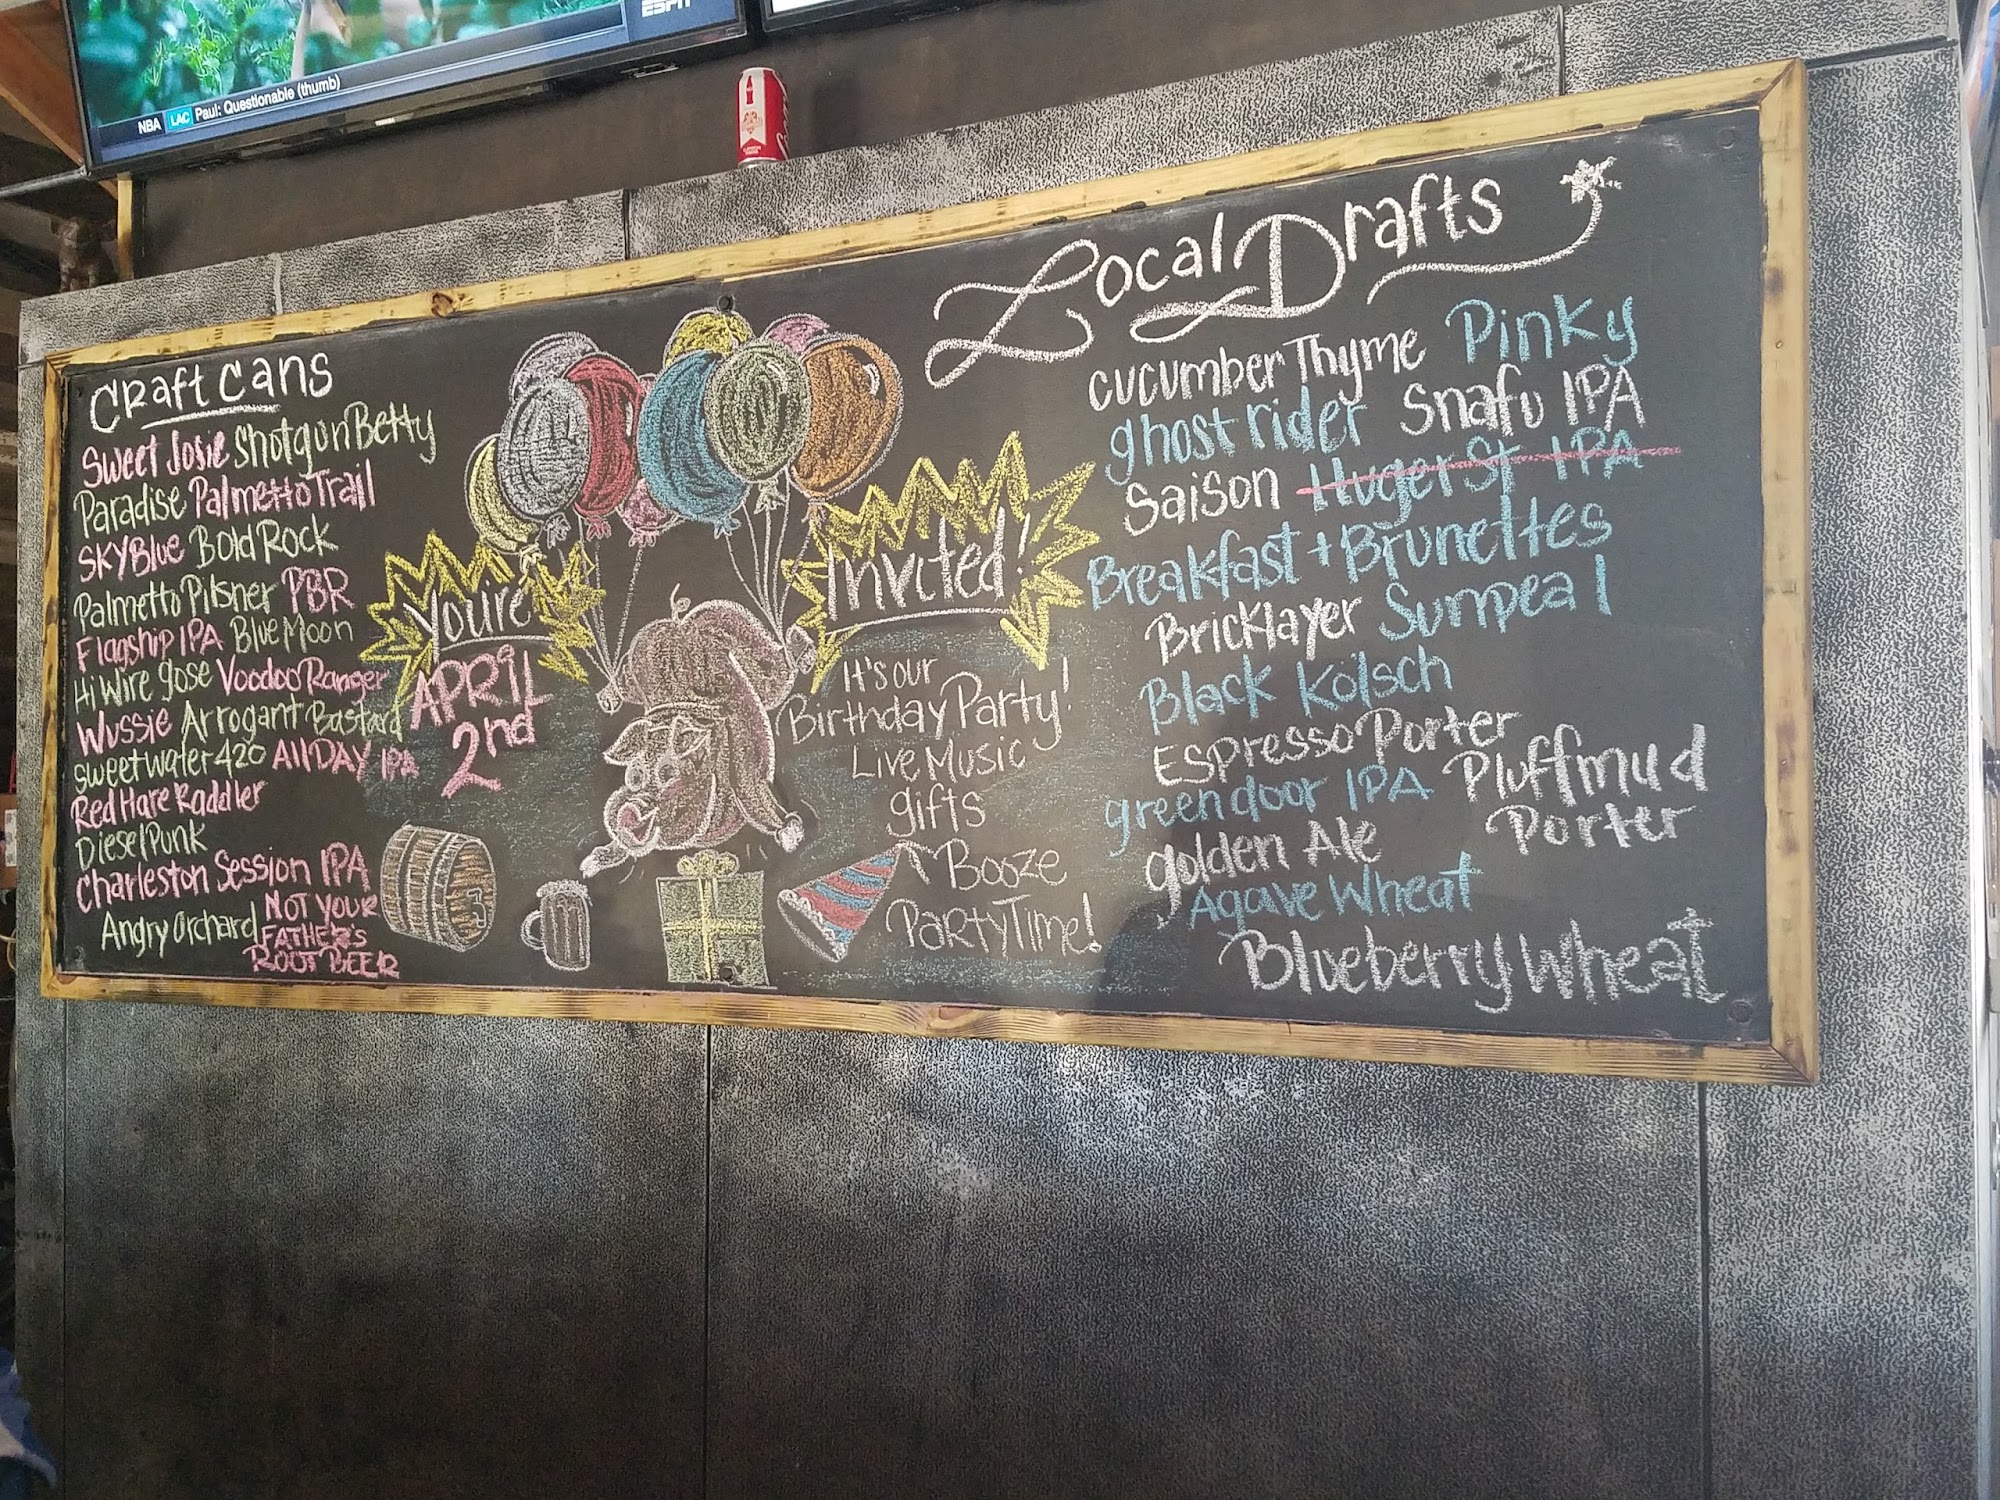 ESPN
NBA LAC Paul: Questionable (thumb)
Craft Cans
Sweet Josie Shotgun Betty
Paradise Palmetto Trail
SKYBlue Bold Rock
Palmetto Pilsner PBR
Flagship IPA Blue Moon
Hi Wire gose Voodoo Ranger
Wussie Arrogant Bastard
Sweetwater 420 All DAY IPA
Red Hare Raddler
Diesel Punk
Charleston Session IPA
Angry Orchard NOT YOUR
FATHER'S
ROOT BEER
You're
Invited!
APRIL
2nd
It's our
Birthday Party!
Live Music
gifts
Booze
Party Time!
Local Drafts
Cucumber Thyme Pinky
ghost rider Snafu IPA
Saison Huger St IPA
Breakfast + Brunettes
Bricklayer Sumpeal
Black Kölsch
Espresso Porter
green door IPA Pluffmud
Porter
golden Ale
Agave Wheat
Blueberry Wheat